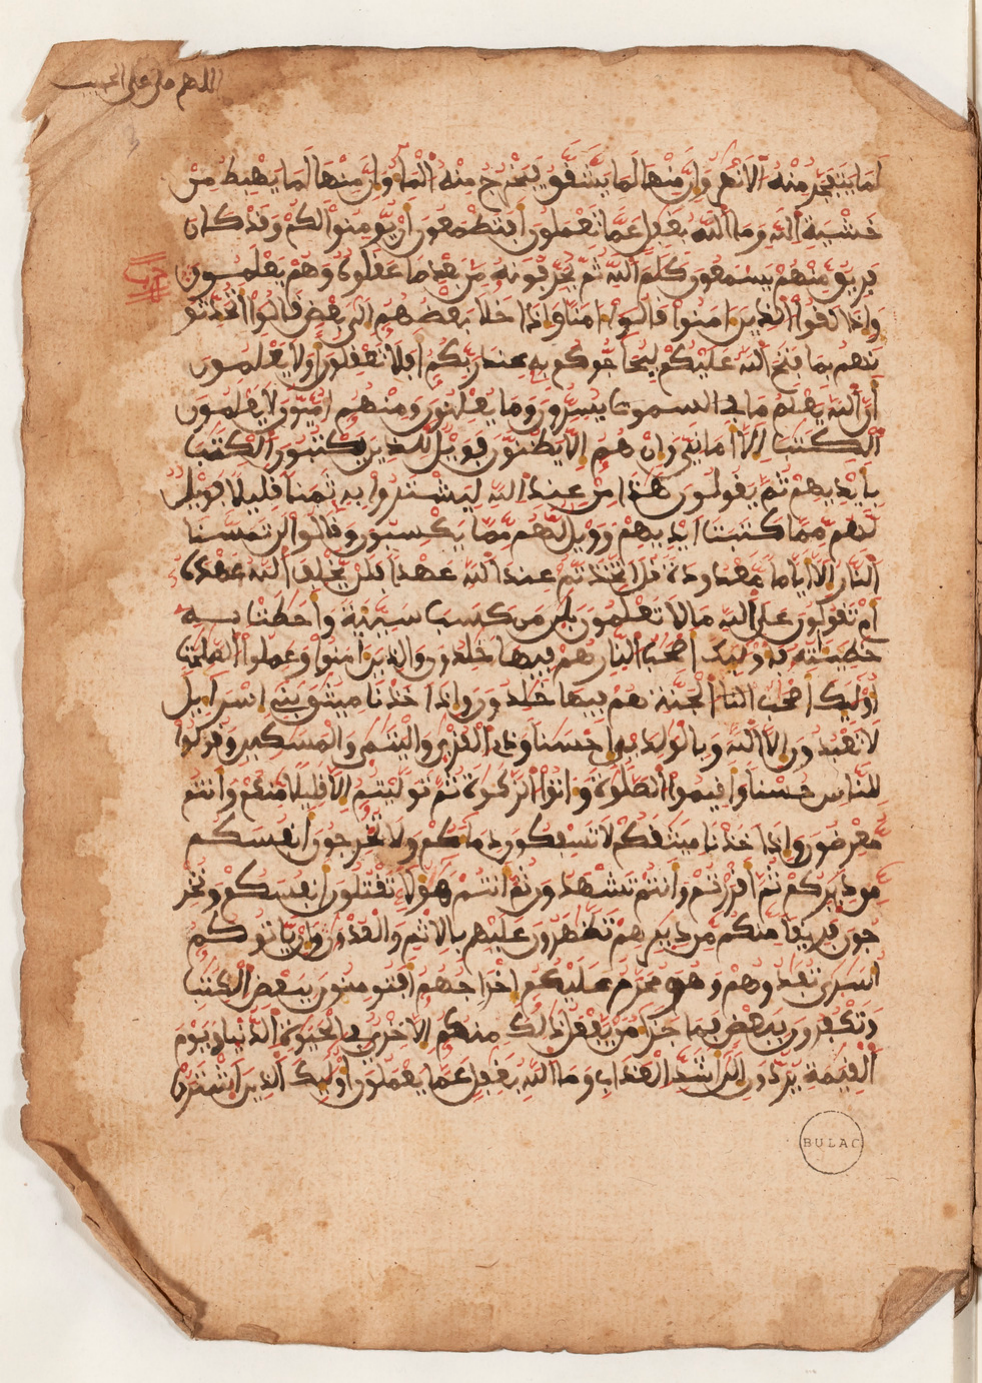 اللهم صل على الحبيب
لما يتفجر منه الانهر وان منها لما يشقق فيخرج منه الماء وان منها لما يهبط من
خشية الله وما الله بغفل عما تعملون افتطمعون ان يومنوا لكم وقد كان
فريق منهم يسمعون كلم الله ثم يحرفونه من بعد ما عقلوه وهم يعلمون
حزب
واذا لقوا الذين امنوا قالوا امنا واذا خلا بعضهم الى بعض قالوا اتحدثو
نهم بما فتح الله عليكم ليحاجوكم به عند ربكم افلا تعقلون اولا يعلمون
ان الله يعلم ما يسرون وما يعلنون ومنهم اميون لا يعلمون
الكتب الا اماني وان هم الا يظنون فويل للذين يكتبون الكتب
بايديهم ثم يقولون هذا من عند الله ليشتروا به ثمنا قليلا فويل
لهم مما كتبت ايديهم وويل لهم مما يكسبون وقالوا لن تمسنا
النار الا اياما معدودة قل اتخذتم عند الله عهدا فلن يخلف الله عهده
ام تقولون على الله ما لا تعلمون بلى من كسب سيية واحطت به
خطيته فاوليك اصحب النار هم فيها خلدون والذين امنوا وعملوا الصلحت
اوليك اصحب الجنة هم فيها خلدون واذ اخذنا ميثق بني اسرايل
لا تعبدون الا الله وبالولدين احسنا وذي القربى واليتمى والمسكين وقولوا
للناس حسنا واقيموا الصلوة واتوا الزكوة ثم توليتم الا قليلا منكم وانتم
معرضون واذ اخذنا ميثقكم لا تسفكون دماكم ولا تخرجون انفسكم
من ديركم ثم اقررتم وانتم تشهدون ثم انتم هؤلا تقتلون انفسكم وتخر
جون فريقا منكم من ديرهم تظهرون عليهم بالاثم والعدون وان ياتوكم
اسرى تفدوهم وهو محرم عليكم اخراجهم افتومنون ببعض الكتب
وتكفرون ببعض فما جزا من يفعل ذلك منكم الا خزي في الحيوة الدنيا ويوم
القيمة يردون الى اشد العذاب وما الله بغفل عما يعملون اوليك الذين اشتروا
BULAC